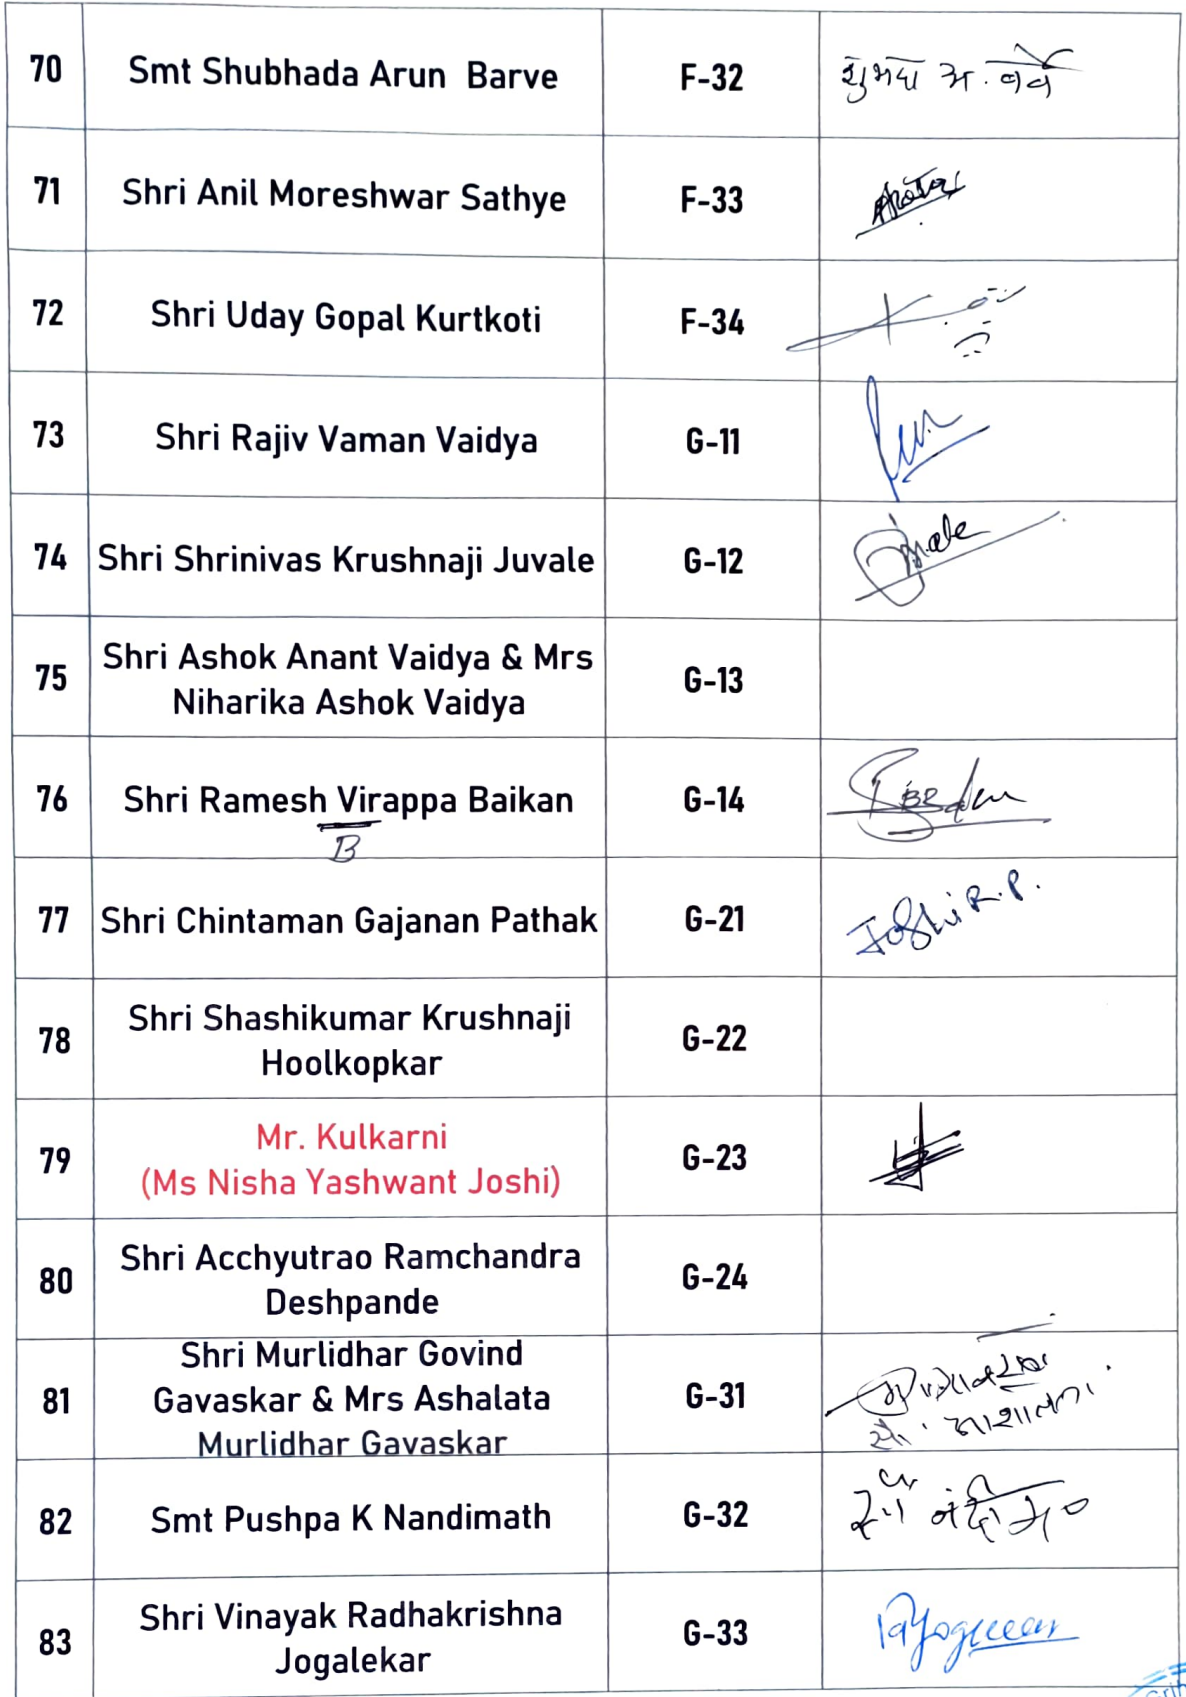 70 Smt Shubhada Arun Barve F-32 शुभदा अ. बर्वे
71 Shri Anil Moreshwar Sathye F-33
72 Shri Uday Gopal Kurtkoti F-34
73 Shri Rajiv Vaman Vaidya G-11
74 Shri Shrinivas Krushnaji Juvale G-12
75 Shri Ashok Anant Vaidya & Mrs
Niharika Ashok Vaidya G-13
76 Shri Ramesh Virappa Baikan G-14
B
77 Shri Chintaman Gajanan Pathak G-21 Joshi R.P.
78 Shri Shashikumar Krushnaji
Hoolkopkar G-22
79 Mr. Kulkarni
(Ms Nisha Yashwant Joshi) G-23
80 Shri Acchyutrao Ramchandra
Deshpande G-24
81 Shri Murlidhar Govind
Gavaskar & Mrs Ashalata G-31
Murlidhar Gavaskar
82 Smt Pushpa K Nandimath G-32
83 Shri Vinayak Radhakrishna
Jogalekar G-33